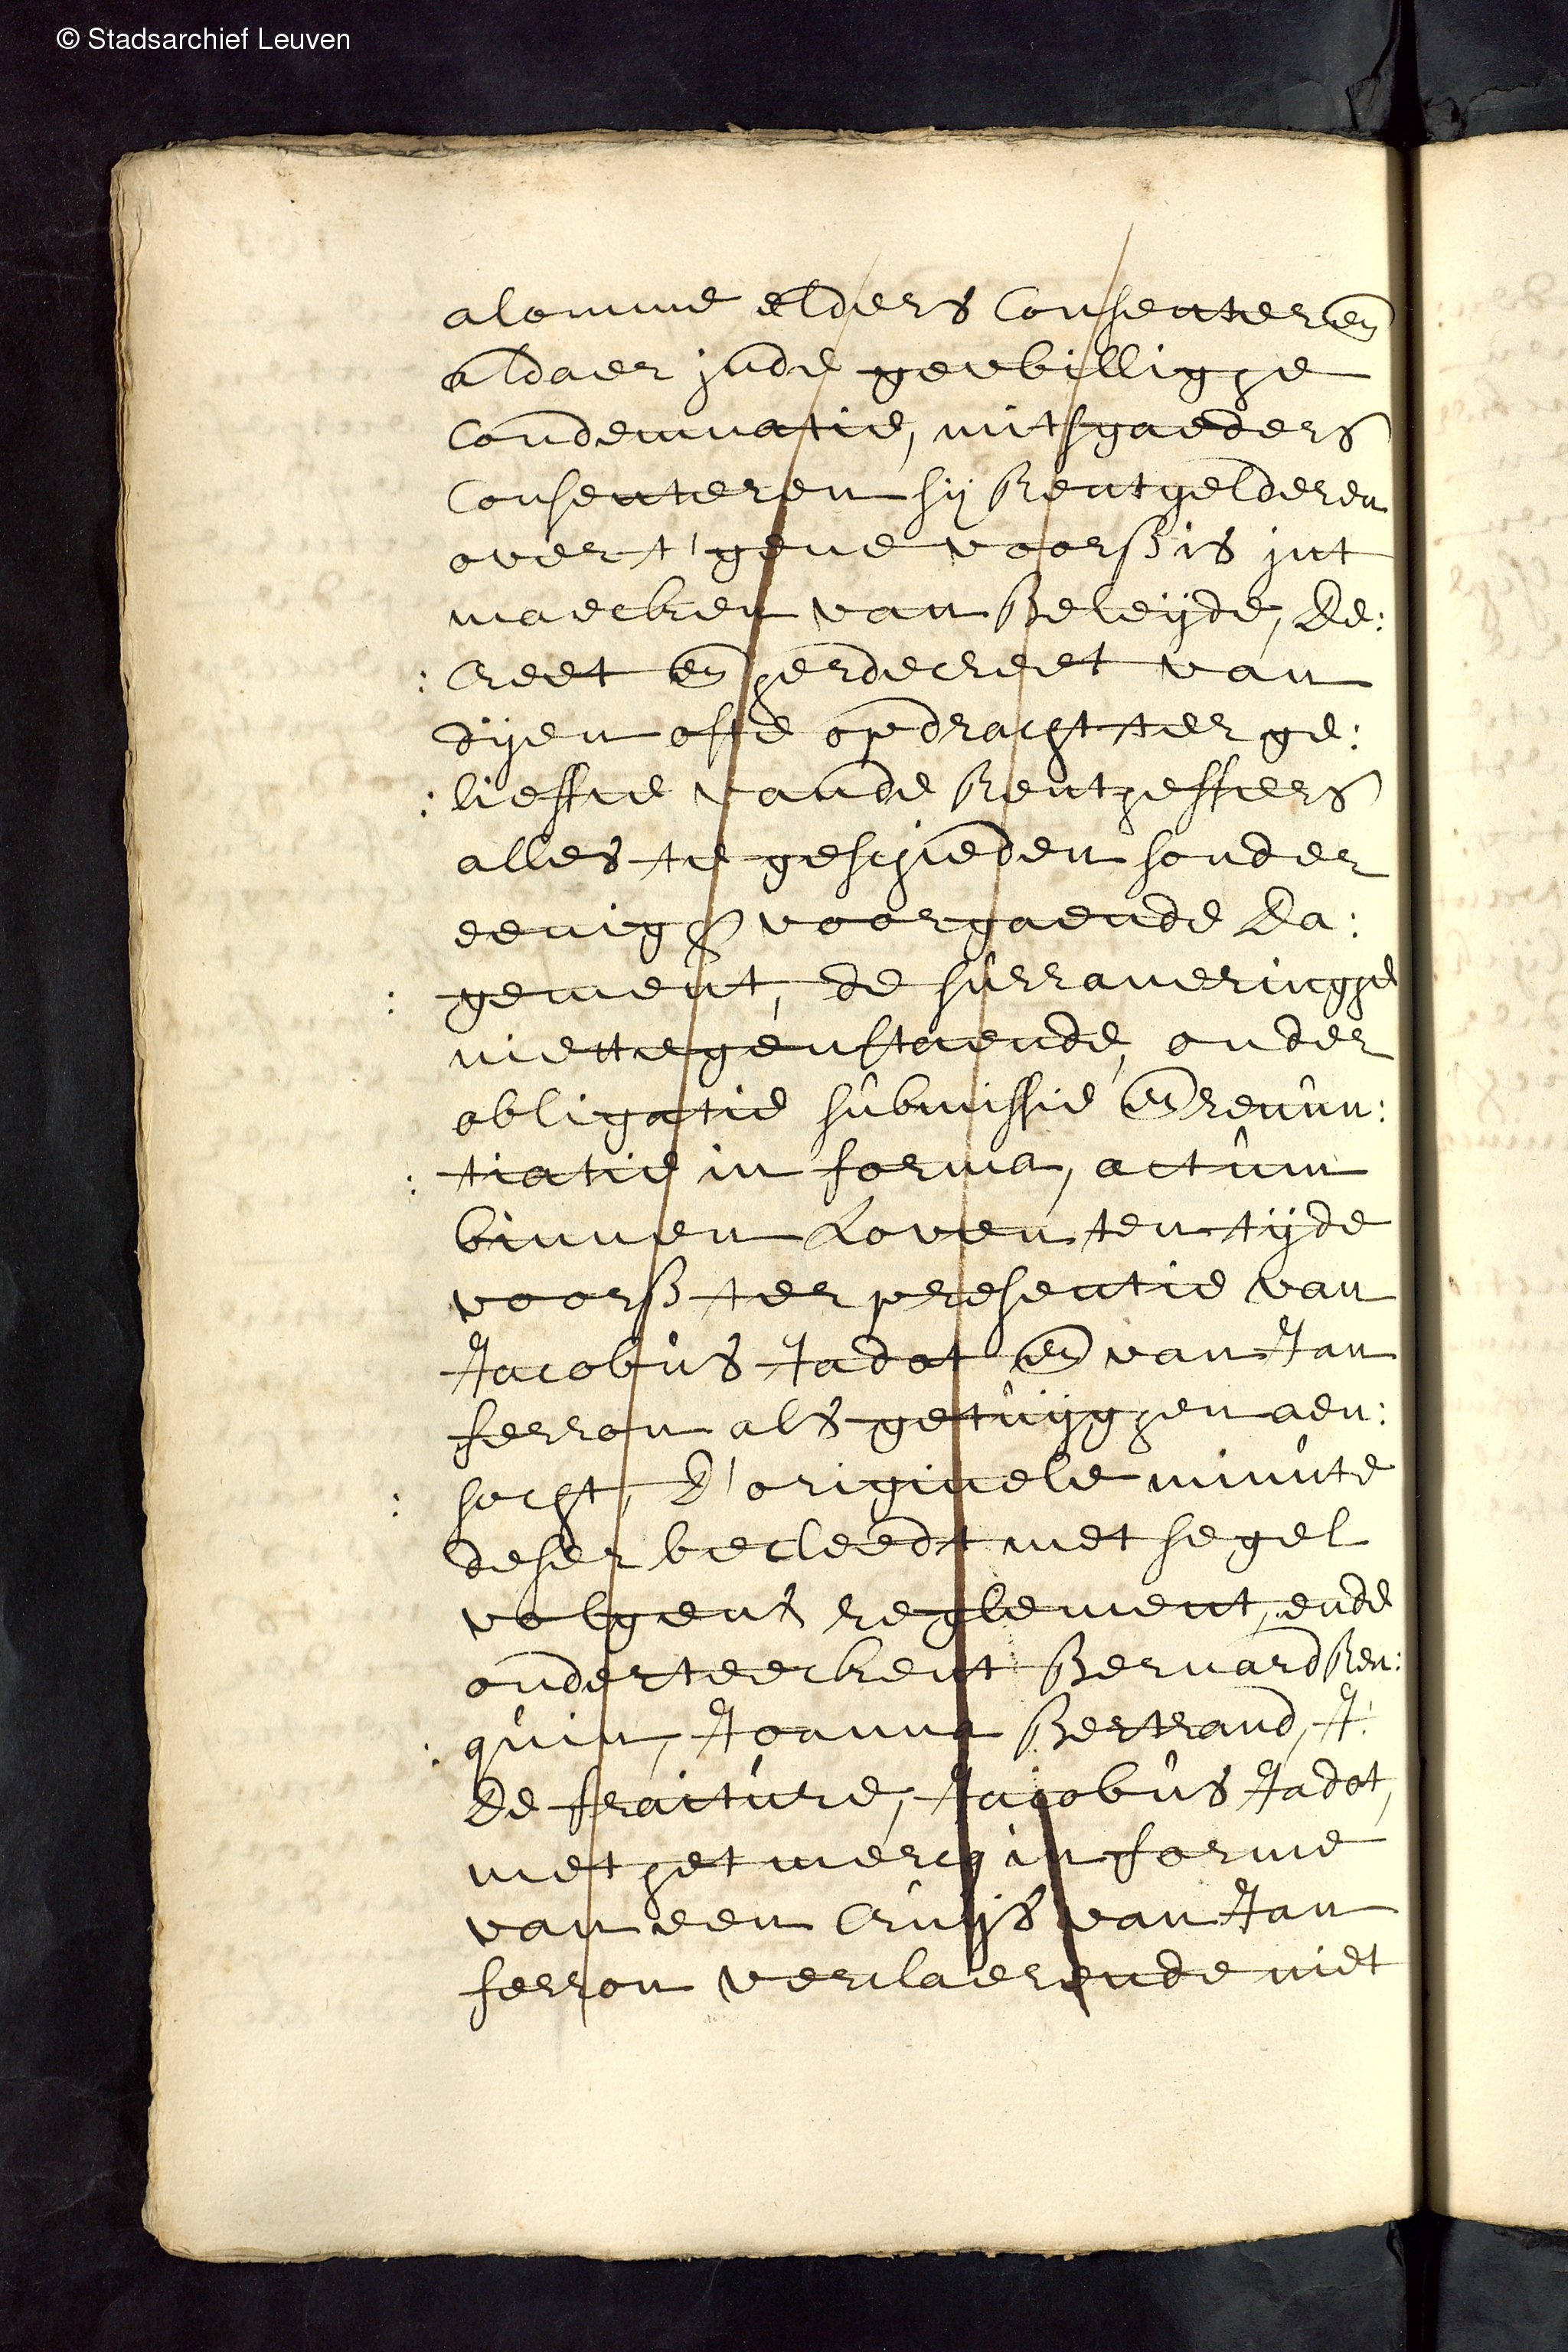 © Stadsarchief Leuven
alomme elders Consenteren
aldaer inde gewillighe
Condemnatie, mitsgaeders
Consenteren sij Rentgelderen
over t'gene voorss is int
maecken van Beleyde, De:
: creet en herdecreet van
dijen offe opdracht ter ge:
: lieffte vande Rentheffers
alles te geschieden sonder
eenigh voorgaende Da:
: gement, de surranneringhe
niettegenstaende, onder
obligatie submissie en renun:
: tiatie in forma, actum
binnen Loven ten tijde
voorss ter presentie van
Jacobus Jadot en van Jan
ferron als getuyghen aen:
: socht, D'originele minute
deser becleedt met segel
volgens reglement, ende
onderteeckent Bernard Ren:
: quin, Joanna Bertrand, J:
De fraiture, Jacobus Jadot,
met het mercq in forme
van een Cruys van Jan
ferron verclaerende niet